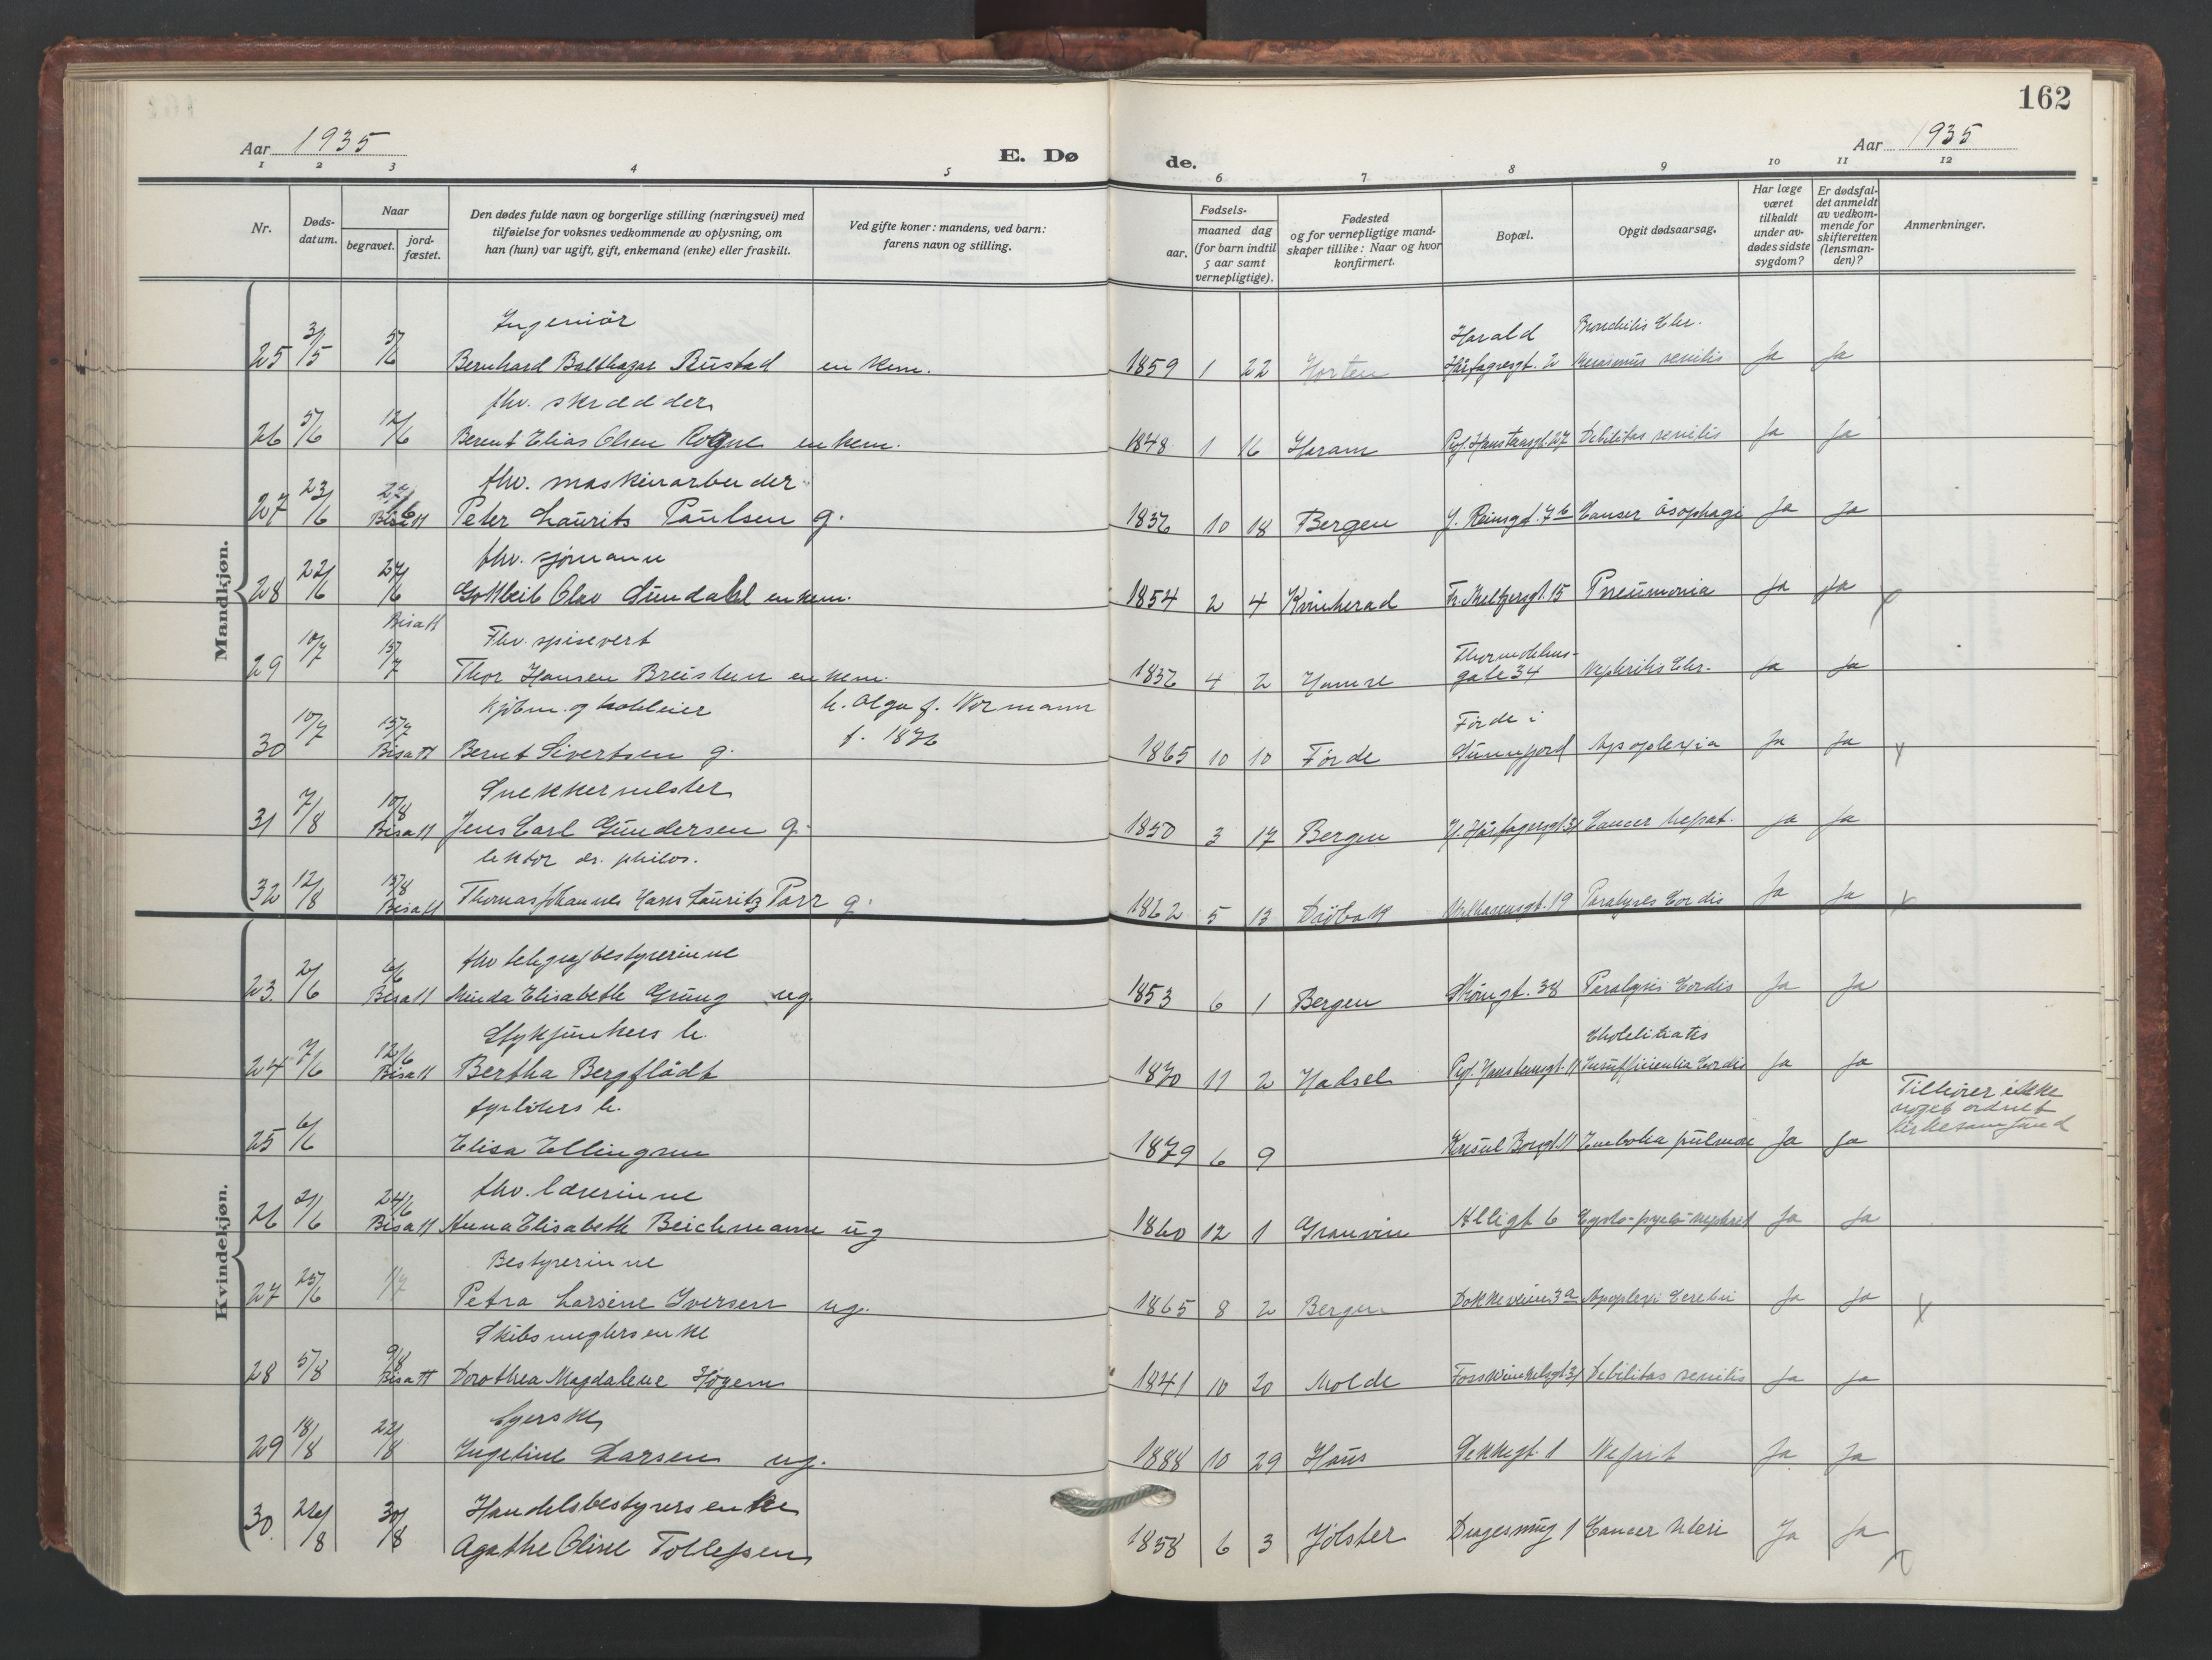 162
Aar 1935
E. Dø
de.
Aar 1935
1 2 3 4 5 6 7 8 9 10 11 12
Nr.
Døds-
datum.
Naar
begravet.
jord-
fæstet.
Den dødes fulde navn og borgerlige stilling (næringsvei) med
tilføielse for voksnes vedkommende av oplysning, om
han (hun) var ugift, gift, enkemand (enke) eller fraskilt.
Ved gifte koner: mandens, ved barn:
farens navn og stilling.
Fødsels-
aar.
maaned dag
(for barn indtil
5 aar samt
vernepligtige).
Fødested
og for vernepligtige mand-
skaper tillike: Naar og hvor
konfirmert.
Bopæl.
Opgit dødsaarsag.
Har læge
været
tilkaldt
under av-
dødes sidste
sygdom?
Er dødsfal-
det anmeldt
av vedkom-
mende for
skifteretten
(lensman-
den)?
Anmerkninger.
Mandkjøn.
Ingeniör
Harald Bronchitis Chr.
25 31/5 5/6 Bernhard Balthazar Rustad enkem. 1859 1 22 Horten Hårfagresgt. 2 senilis Ja Ja
fhv. skrædder
26 5/6 12/6 Berent Elias Olsen Rogne enkem. 1848 1 16 Haram Prof. Hansteensgt. 27 Debilitas senilis Ja Ja
fhv. maskinarbeider
27 23/6 Bisatt Peter Laurits Paulsen g. 10 18 Bergen Cancer ösophagi Ja Ja
fhv. sjömann
28 22/6 27/6 Gottleib Olav Sundahl enkem. 1854 2 4 Kvinherad Fr. Meltzersgt. 15 Pneumonia Ja Ja
Bisatt Fhv. spisevert Thormöhlens-
29 10/7 15/7 Thor Hansen Breistein enkem. 4 2 Hamre gate 34 Nephritis Chr. Ja Ja
Kjöbm. og h. Olga f. Wormann Förde i
30 10/7 15/7 Bisatt Bernt Sivertsen g. f. 1876 1865 10 10 Förde Sunnfjord Apoplexia Ja Ja
Snekkermester
31 7/8 10/8 Bisatt Jens Carl Gundersen g. 1850 3 17 Bergen H. Hårfagersgt 31 Cancer hepat. Ja Ja
lektor dr. philos.
32 12/8 15/8 Bisatt Thomas Johannes Hans Lauritz Parr g. 1862 5 13 Dröbak Welhavensgt. 19 Paralyses Cordis Ja Ja
Kvindekjøn.
fhv telegrafbestyrerinne
23. 2/6 6/6 Bisatt Minda Elisabeth Grung ug. 1853 6 1 Bergen Strömgt. 38 Paralysis Cordis Ja Ja
Stykjunkers h. Cholelitiates
24 7/6 12/6 Bisatt Bertha Bergflödt 1870 11 2 Hadsel Prof. Hansteensgt. 11 Insufficientia Cordis Ja Ja
fyrböters h. Tilhörer ikke
noget ordnet
kirkesamfund
25 6/6 Elisa Ellingsen 1879 6 9 Konsul Börsgt. 11 Embolia pulmon Ja Ja
fhv. lærerinne
26 21/6 24/6 Bisatt Anna Elisabeth Beichmann ug 1860 12 1 Granvin Allégt 6 Cysto-pyelo-nephrit Ja Ja
Bestyrerinne
27 25/6 1/7 Petra Larsine Iversen ug. 1865 8 2 Bergen Dokkeveien 3a Apoplexi Cerebri Ja Ja
Skibsmeglersenke
28 5/8 9/8 Bisatt Dorothea Magdalene 1841 10 20 Molde Fosswinkelsgt 31 Debilitas senilis Ja Ja
Syerske
29 18/8 22/8 Ingeline Larsen ug. 1888 10 29 Haus Sekkegt. 1 Nefrit Ja Ja
Handelsbestyrersenke
30. 26/8 30/8 Agathe Oline Tollefsen 1858 6 3 Jölster Dragesmug 1 Cancer Uteri Ja Ja